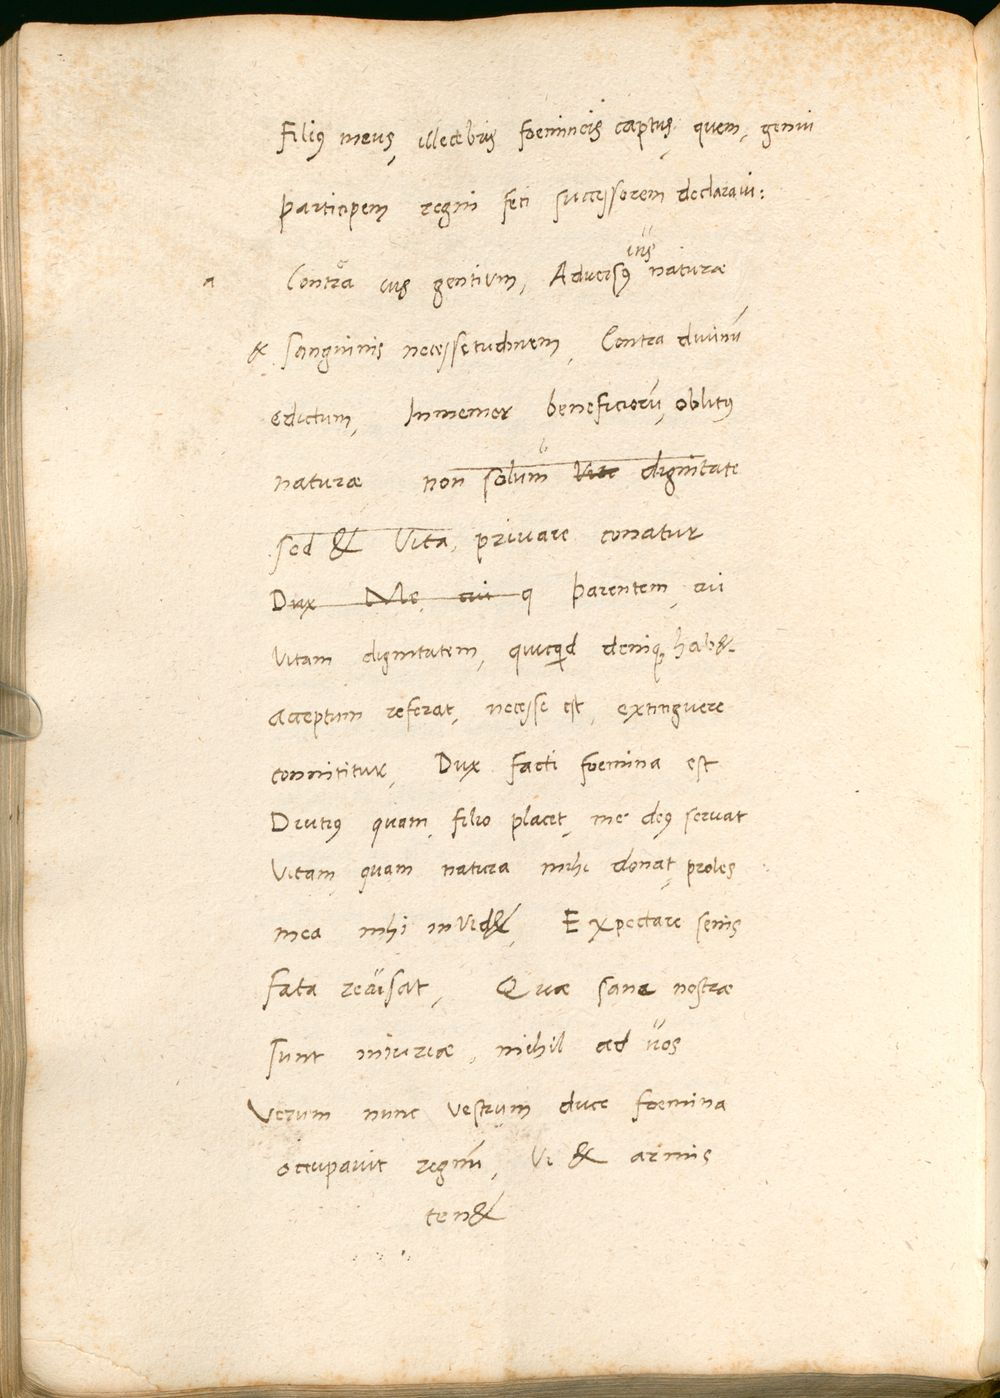 Filiꝰ meus, illecebris foemineis captus, quem, genui
participem regni feci successorem declaraui:
ius
a Contra ius gentium, Aduersꝰ naturæ
& sanguinis necessetudinem, Contra diuinũ
edictum, Inmemor beneficiorũ, oblitꝰ
naturæ non solum dignitate
sed & Vita, priuare conatur
Dux Me, cui q parentem, cui
Vitam dignitatem, quicqd deniq hab&
acceptum referat, necesse est, extinguere
connititur, Dux facti foemina est
Diutiꝰ quam, filio placet, me deꝰ seruat
Vitam quam natura mihi donat, proles
mea mihi inVid&, Expectare senis
fata recusat, Quæ sane nostræ
sunt iniuriæ, nichil ad uos
Verum nunc Vestrum duce foemina
occupauit regnũ, Vi & armis
ten&